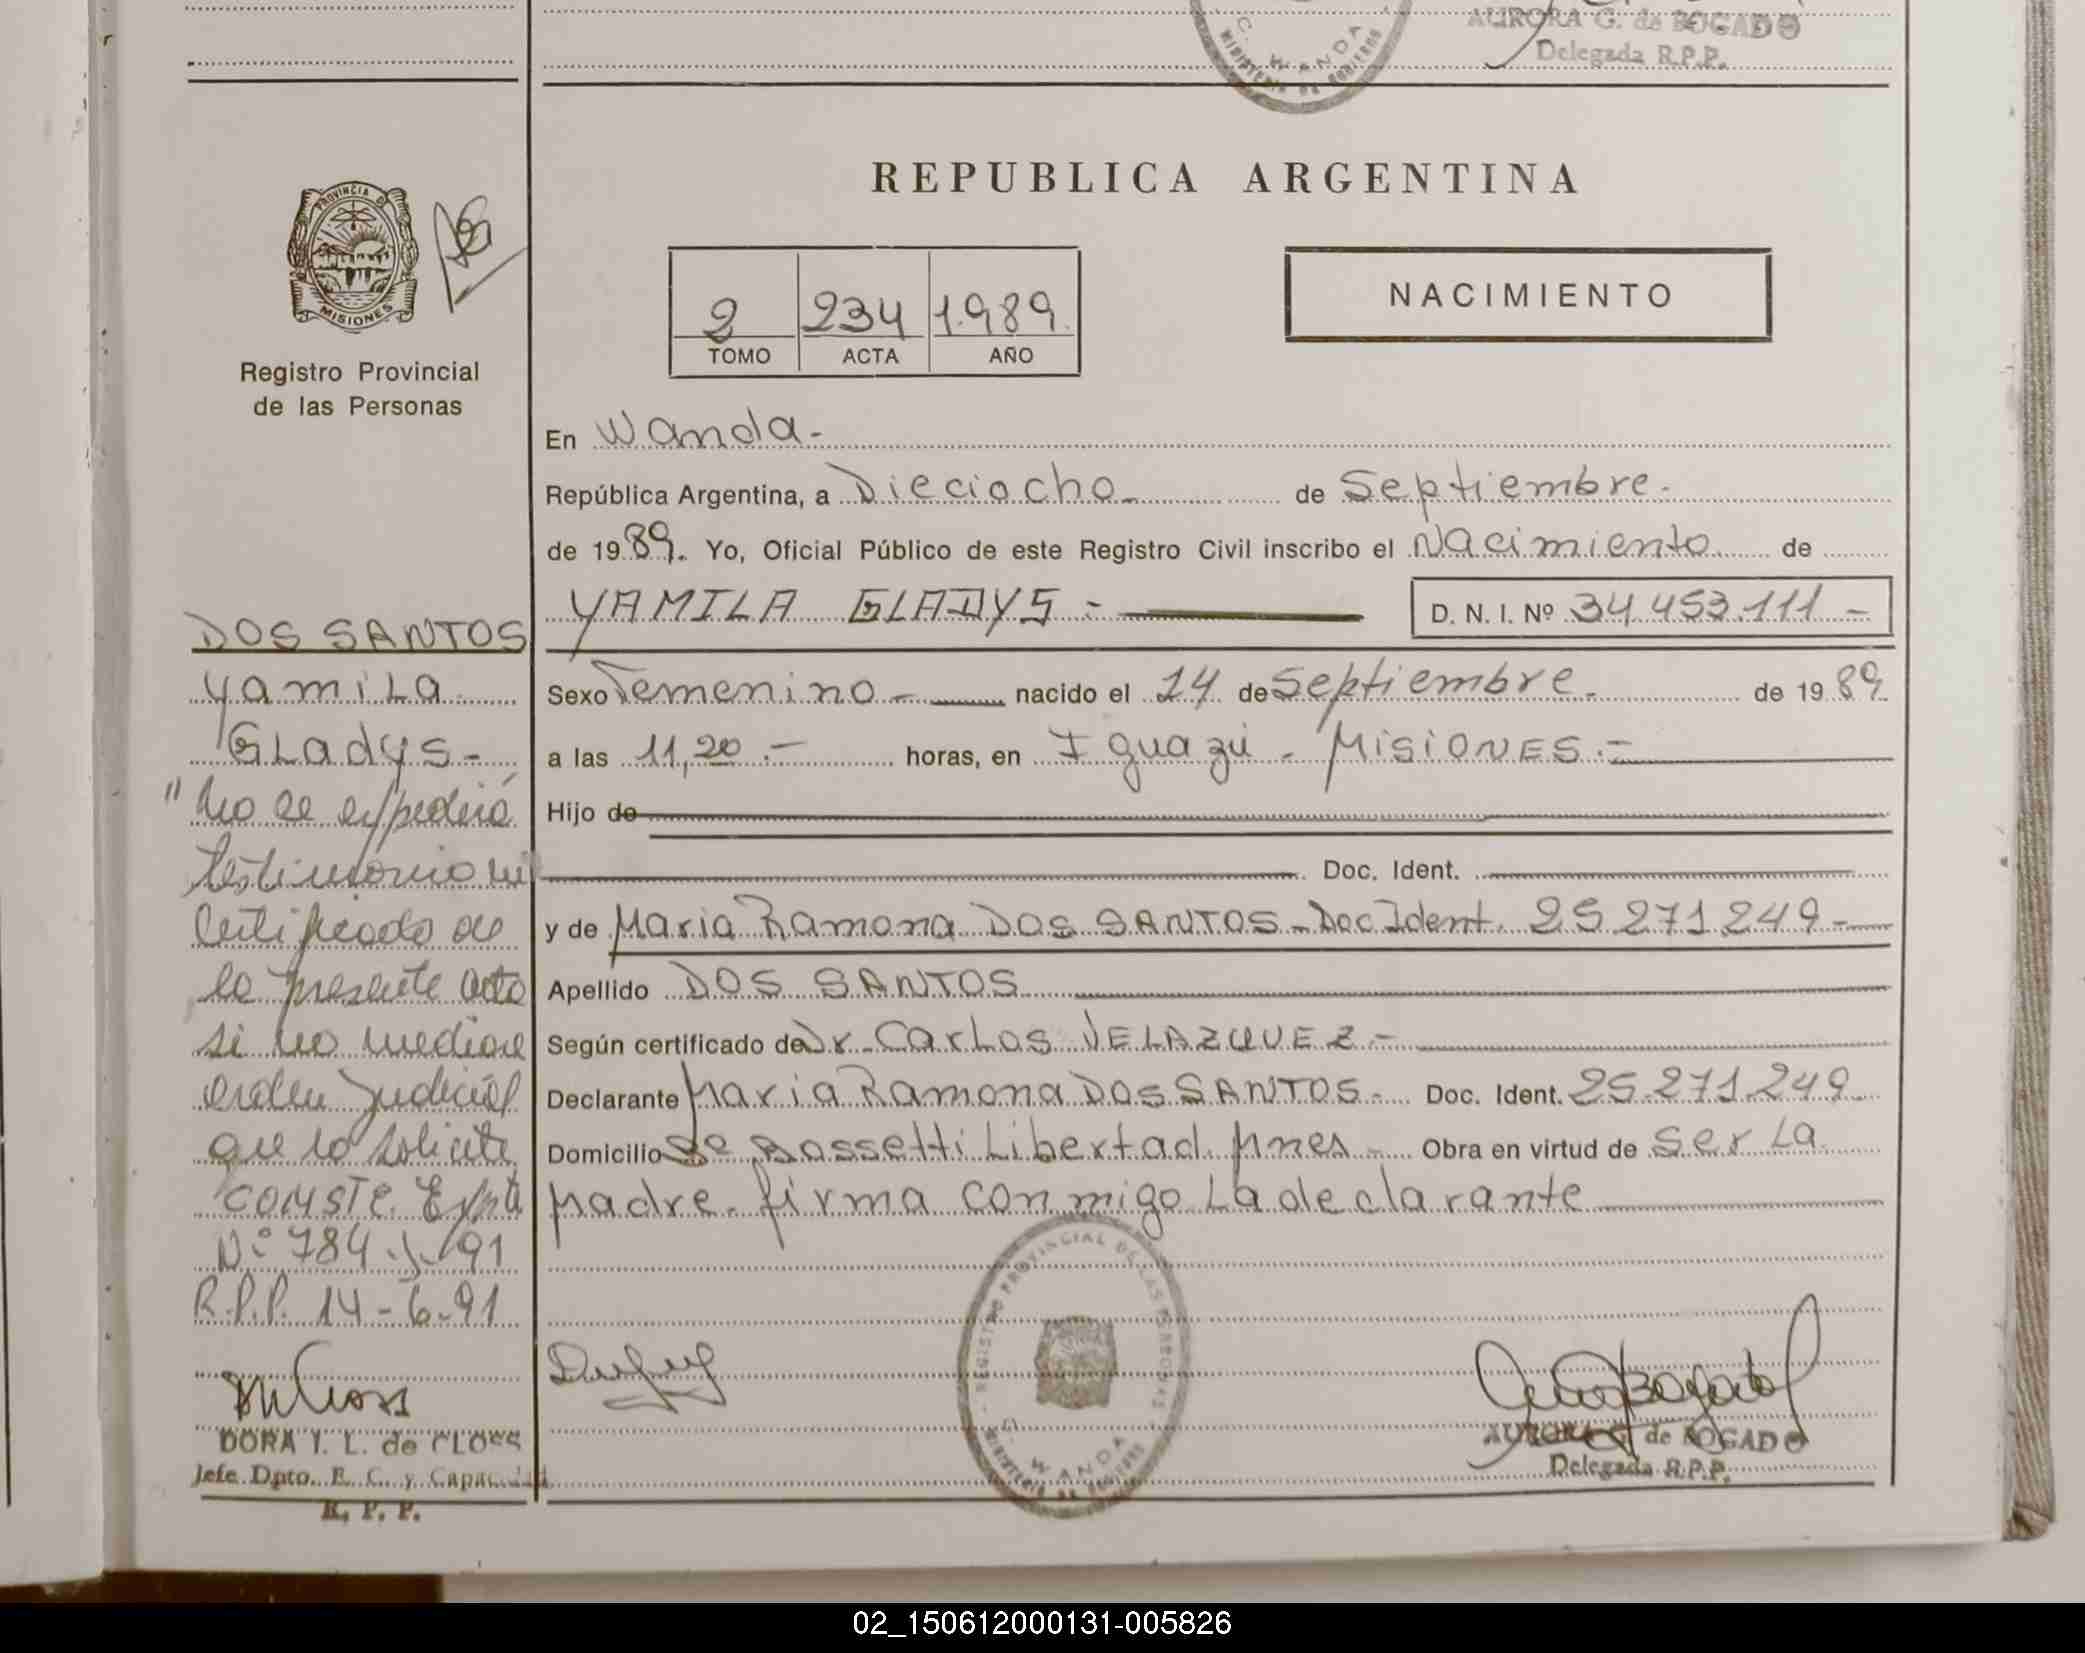 AURORA G. de BOGADO
Delegada R.P.P.
C. WANDA
MINISTERIO DE GOBIERNO
REPUBLICA ARGENTINA
PROVINCIA DE
MISIONES
Registro Provincial
de las Personas
2 234 1.989.
TOMO ACTA AÑO
NACIMIENTO
En Wanda.-
República Argentina, a Dieciocho.- de Septiembre.-
de 1989. Yo, Oficial Público de este Registro Civil inscribo el Nacimiento de
YAMILA GLADYS.- D. N. I. Nº 34.453.111.-
Sexo Femenino.- nacido el 14 de Septiembre.- de 1989.
a las 11,20.- horas, en Iguazú.- MISIONES.-
Hijo de
Doc. Ident.
y de Maria Ramona DOS SANTOS - Doc Ident. 25.271.249.-
Apellido DOS SANTOS
Según certificado de Dr. Carlos VELAZQUEZ.-
Declarante Maria Ramona DOS SANTOS.- Doc. Ident. 25.271.249
Domicilio Bº Bossetti Libertad. Mnes.- Obra en virtud de ser La
Madre. firma conmigo La declarante
DOS SANTOS
Yamila
Gladys.-
"No se expedirá
testimonio ni
Certificado de
la presente acta
si no mediare
orden judicial
que lo solicite
CONSTE. Expte
Nº 784-J-91
R.P.P. 14-6-91
DORA I. L. de CLOSS
Jefe Dpto. E. C. y Capacidad
R. P. P.
REGISTRO PROVINCIAL DE LAS PERSONAS
C. WANDA
MINISTERIO DE GOBIERNO
AURORA G. de BOGADO
Delegada R.P.P.
02_150612000131-005826